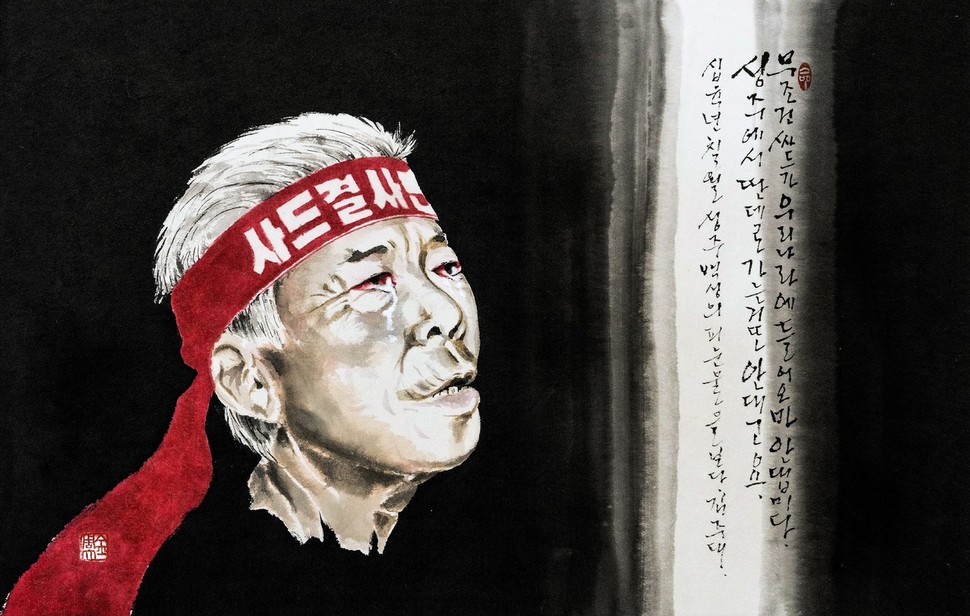 사드결사
무조건 싸드가 우리나라에 들어오마 안댑미다.
성주에서 딴데로 가는거또 안대고요.
십육년 칠월 성주 백성의 피눈물을 보다 김주대.